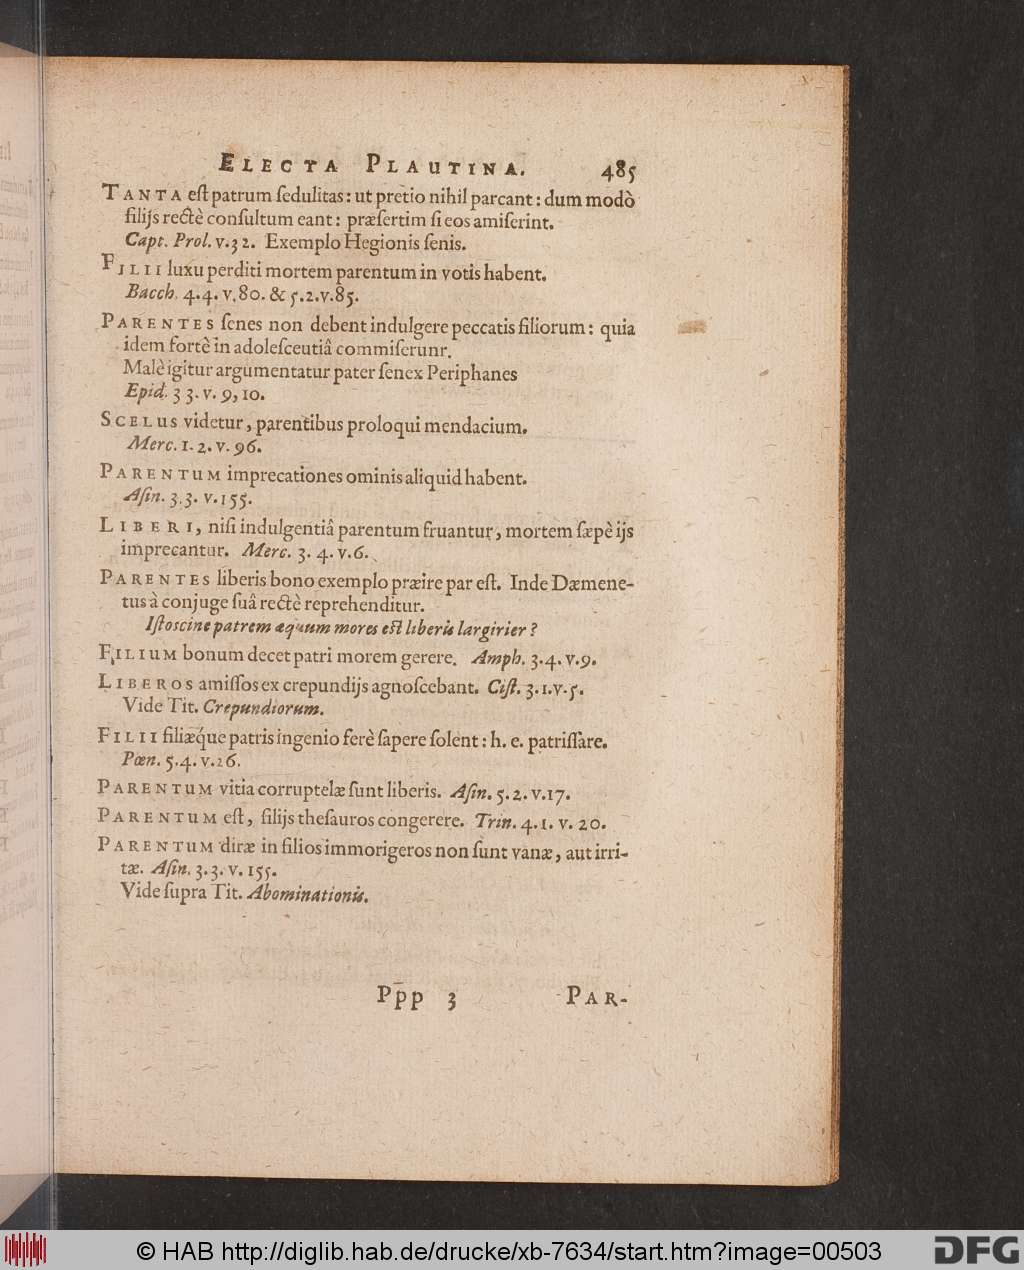 ELECTA PLAUTINA. 485
TANTA eſt patrum ſedulitas: ut pretio nihil parcant: dum modò
filijs rectè conſultum eant: præſertim ſi eos amiſerint.
Capt. Prol. v.32. Exemplo Hegionis ſenis.
FILII luxu perditi mortem parentum in votis habent.
Bacch. 4.4. v.80. & 5.2.v.85.
PARENTES ſenes non debent indulgere peccatis filiorum: quia
idem fortè in adoleſceutiâ commiſerunr.
Malè igitur argumentatur pater ſenex Periphanes
Epid. 3 3. v. 9, 10.
SCELUS videtur, parentibus proloqui mendacium.
Merc. 1. 2. v. 96.
PARENTUM imprecationes ominis aliquid habent.
Aſin. 3.3. v.155.
LIBERI, niſi indulgentiâ parentum fruantur, mortem ſæpè ijs
imprecantur. Merc. 3. 4. v.6.
PARENTES liberis bono exemplo præire par eſt. Inde Dæmene-
tus à conjuge ſuâ rectè reprehenditur.
Iſtoscine patrem æquum mores eſt liberis largirier?
FILIUM bonum decet patri morem gerere. Amph. 3.4. v.9.
LIBEROS amiſſos ex crepundijs agnoſcebant. Ciſt. 3.1.v.5.
Vide Tit. Crepundiorum.
FILII filiæq́ue patris ingenio ferè ſapere ſolent: h. e. patriſſare.
Pœn. 5.4. v.26.
PARENTUM vitia corruptelæ ſunt liberis. Aſin. 5.2. v.17.
PARENTUM eſt, filijs theſauros congerere. Trin. 4.1. v. 20.
PARENTUM diræ in filios immorigeros non ſunt vanæ, aut irri-
tæ. Aſin. 3.3. v. 155.
Vide ſupra Tit. Abominationis.
Ppp 3 PAR-
© HAB http://diglib.hab.de/drucke/xb-7634/start.htm?image=00503 DFG